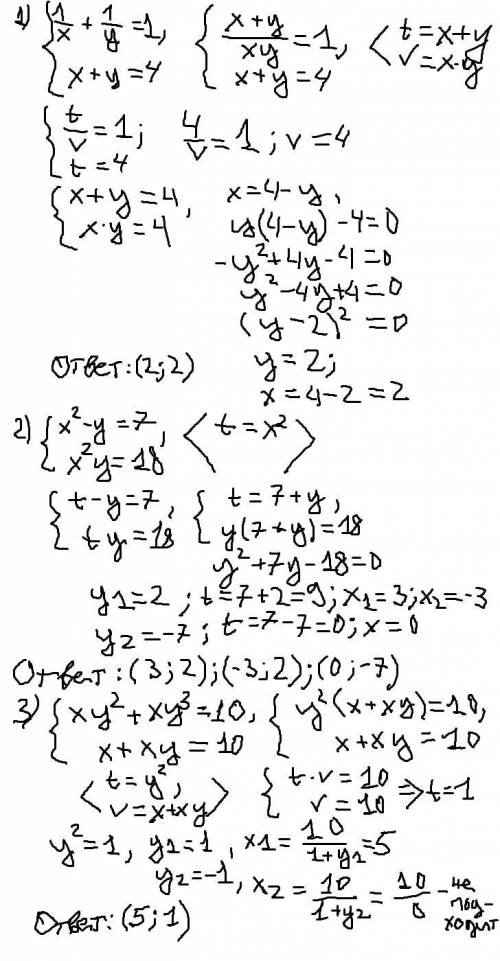 1) { 1/x + 1/y = 1, { (x+y)/(xy) = 1, < t = x+y
x+y = 4 x+y = 4 v = x·y
{ t/v = 1; 4/v = 1; v = 4
t = 4
{ x+y = 4, x = 4-y,
x·y = 4 y(4-y) -4=0
-y²+4y-4=0
y²-4y+4=0
(y-2)² =0
Ответ: (2;2) y=2;
x=4-2=2
2) { x²-y=7, < t=x² >
x²y=18
{ t-y=7, { t=7+y,
ty=18 y(7+y)=18
y²+7y-18=0
y1=2 ; t=7+2=9; x1=3; x2=-3
y2=-7; t=7-7=0; x=0
Ответ: (3;2);(-3;2);(0;-7)
3) { xy²+xy³=10, { y²(x+xy)=10,
x+xy=10 x+xy=10
< t=y², { t·v=10 => t=1
v=x+xy > v=10
y²=1, y1=1, x1= 10/(1+y1) =5
y2=-1, x2= 10/(1+y2) = 10/0 - не под-ходит
Ответ: (5;1)